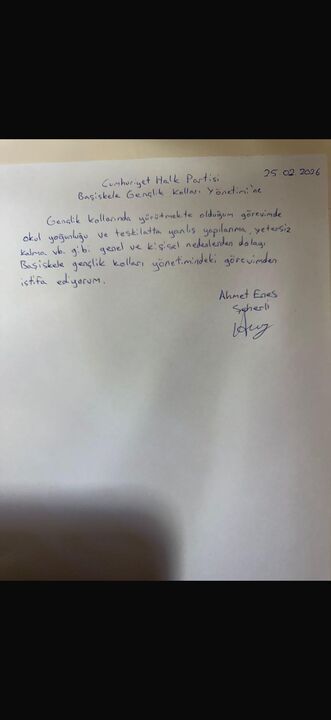 25 02 2026
Cumhuriyet Halk Partisi
Başiskele Gençlik Kolları Yönetimi'ne
Gençlik kollarında yürütmekte olduğum görevimde
okul yoğunluğu ve teşkilatta yanlış yapılanma, yetersiz
kalma vb. gibi genel ve kişisel nedenlerden dolayı
Başiskele gençlik kolları yönetimindeki görevimden
istifa ediyorum.
Ahmet Enes
Seherli